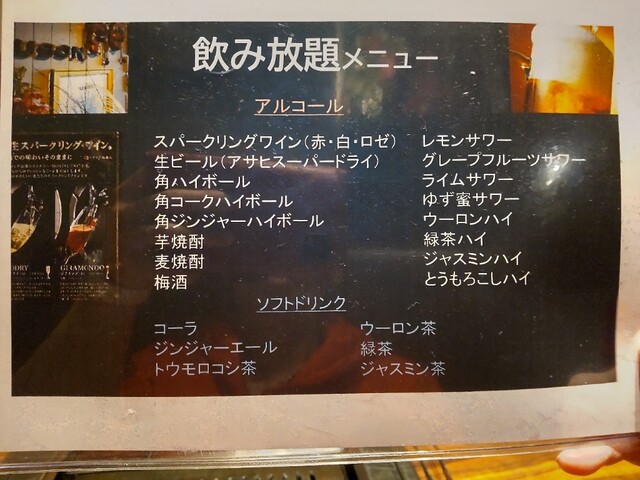 飲み放題メニュー
アルコール
スパークリングワイン（赤・白・ロゼ）
生ビール（アサヒスーパードライ）
角ハイボール
角コークハイボール
角ジンジャーハイボール
芋焼酎
麦焼酎
梅酒
レモンサワー
グレープフルーツサワー
ライムサワー
ゆず蜜サワー
ウーロンハイ
緑茶ハイ
ジャスミンハイ
とうもろこしハイ
ソフトドリンク
コーラ
ジンジャーエール
トウモロコシ茶
ウーロン茶
緑茶
ジャスミン茶
生スパークリングワイン。
での味わいそのままに
DRY
GIRAMONDO